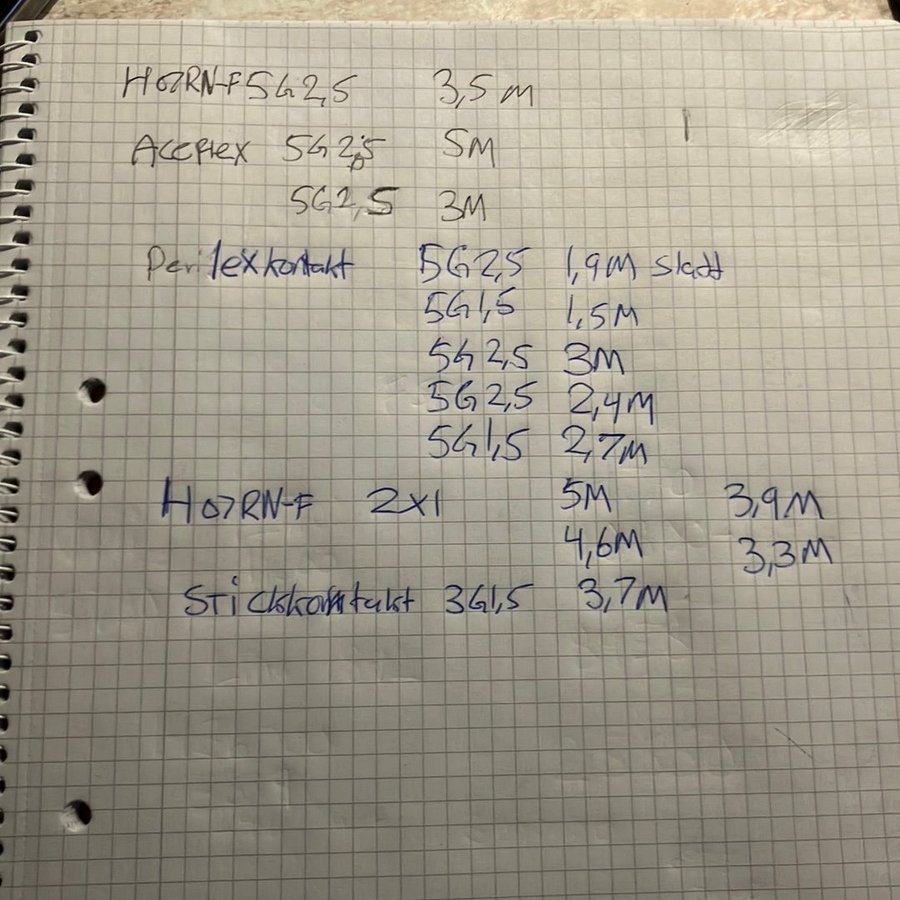 H07RN-F 5G2,5 3,5 M
Aceflex 5G2,5 5M
5G2,5 3M
Perilexkontakt 5G2,5 1,9M sladd
5G1,5 1,5M
5G2,5 3M
5G2,5 2,4M
5G1,5 2,7M
H07RN-F 2x1 5M 3,9M
4,6M 3,3M
Stickkontakt 3G1,5 3,7M